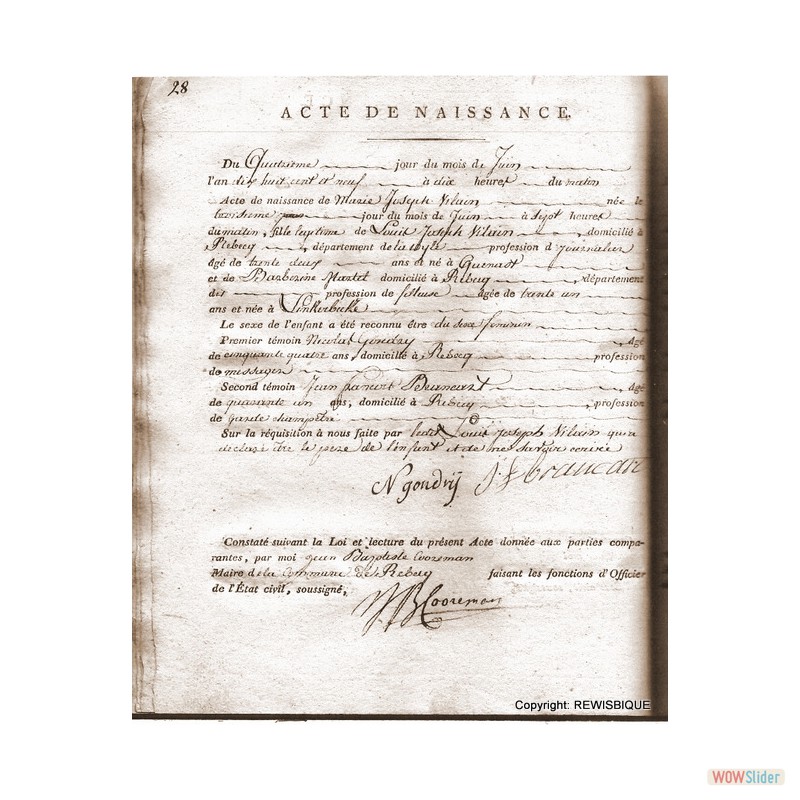 28
ACTE DE NAISSANCE.
Du Quatrieme jour du mois de Juin
l'an dix huit cent et neuf à dix heures du matin
Acte de naissance de Marie Joseph Vilain née le
troisieme jour du mois de Juin à sept heures
du matin, fille legitime de Louis Joseph Vilain, domicilié à
Rebecq, département de la Dyle profession d journalier
âgé de trente deux ans et né à Quenast
et de Barberine Martel domicilié à Rebecq, département
des profession de fileuse âgée de trente un
ans et née à Linkerbecke
Le sexe de l'enfant a été reconnu être du sexe feminin
Premier témoin Nicolas Gondry, âgé
de cinquante quatre ans, domicilié à Rebecq profession
de messager
Second témoin Jean Brancart âgé
de quarante un ans, domicilié à Rebecq, profession
de garde champetre
Sur la réquisition à nous faite par ledit Louis Joseph Vilain qui a
declaré être le pere de l'enfant et de ne savoir ecrire
N gondrij J f brancart
Constaté suivant la Loi et lecture du présent Acte donnée aux parties compa-
rantes, par moi jean Baptiste Cooreman
Maire de la Commune de Rebecq faisant les fonctions d'Officier
de l'État civil, soussigné,
JB Cooreman
Copyright: REWISBIQUE
WOWSlider